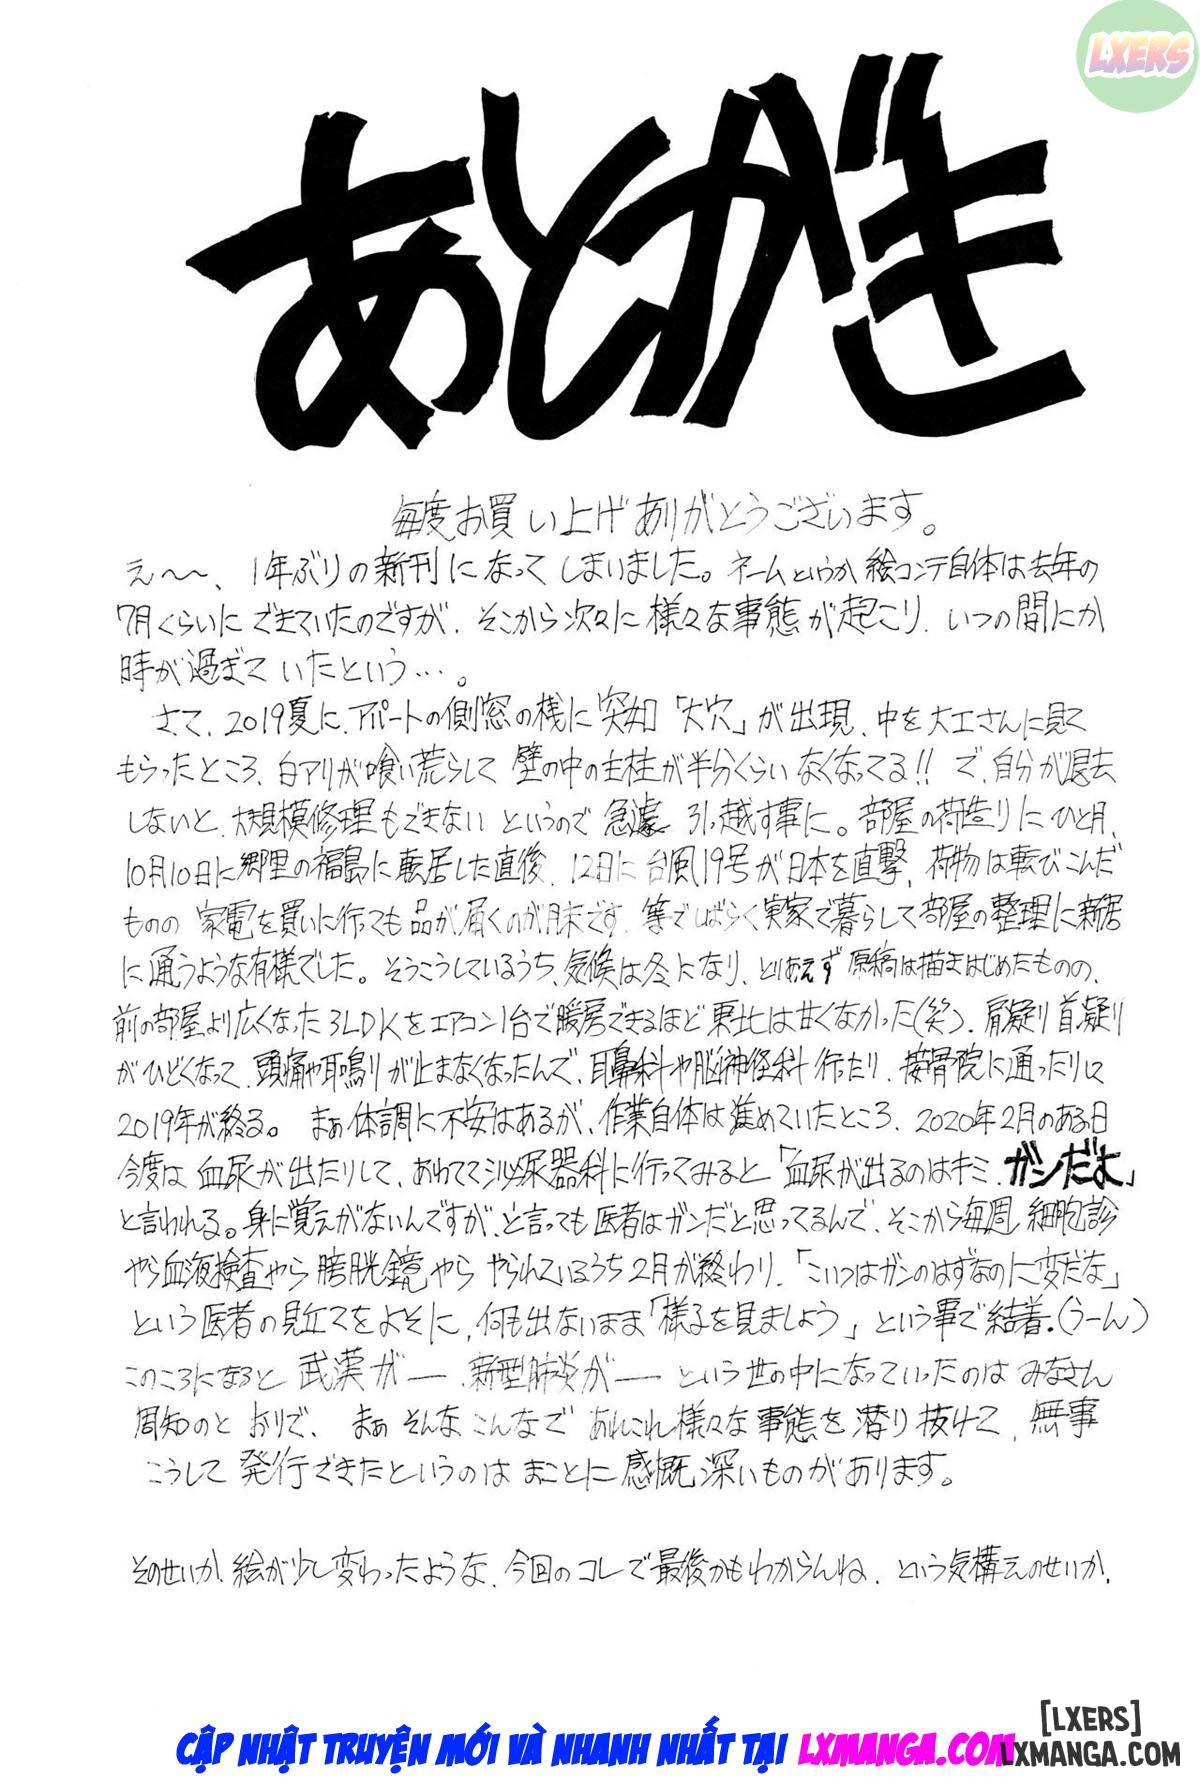 LXERS
あとがき
毎度お買い上げありがとうございます。
え〜〜、1年ぶりの新刊になってしまいました。ネームというか絵コンテ自体は去年の
7月くらいにできていたのですが、そこから次々に様々な事態が起こり、いつの間にか
時が過ぎていたという…。
さて、2019夏に、アパートの側窓の桟に突如「大穴」が出現、中を大工さんに見て
もらったところ、白アリが喰い荒らして壁の中の主柱が半分くらいなくなってる!! で、自分が退去
しないと、大規模修理もできないというので急遽引っ越す事に。部屋の荷造りにひと月、
10月10日に郷里の福島に転居した直後、12日に台風19号が日本を直撃、荷物は転びこんだ
ものの家電を買いに行っても品が届くのが月末です、等でしばらく実家で暮らして部屋の整理に新居
に通うような有様でした。そうこうしているうち、気候は冬になり、とりあえず原稿は描きはじめたものの、
前の部屋より広くなった3LDKをエアコン1台で暖房できるほど東北は甘くなかった(笑)、肩凝り首凝り
がひどくなって、頭痛や耳鳴りが止まなくなったんで、耳鼻科や脳神経科行ったり、接骨院に通ったりして
2019年が終る。まぁ体調に不安はあるが、作業自体は進めていたところ、2020年2月のある日
今度は血尿が出たりして、あわてて泌尿器科に行ってみると「血尿が出るのはキミ、ガンだよ」
と言われる。身に覚えがないんですが、と言っても医者はガンだと思ってるんで、そこから毎週細胞診
やら血液検査やら膀胱鏡やらやられているうち2月が終わり、「こいつはガンのはずなのに変だな」
という医者の見立てをよそに、何も出ないまま「様子を見ましょう」という事で結着。(うーん)
このころになると武漢がー新型肺炎がーという世の中になっていったのはみなさん
周知のとおりで、まぁそんなこんなであれこれ様々な事態を潜り抜けて、無事
こうして発行できたというのはまことに感慨深いものがあります。
そのせいか、絵が少し変わったような、今回のコレで最後かもわからんね、という気構えのせいか、
[LXERS]
CẬP NHẬT TRUYỆN MỚI VÀ NHANH NHẤT TẠI LXMANGA.COM
LXMANGA.COM